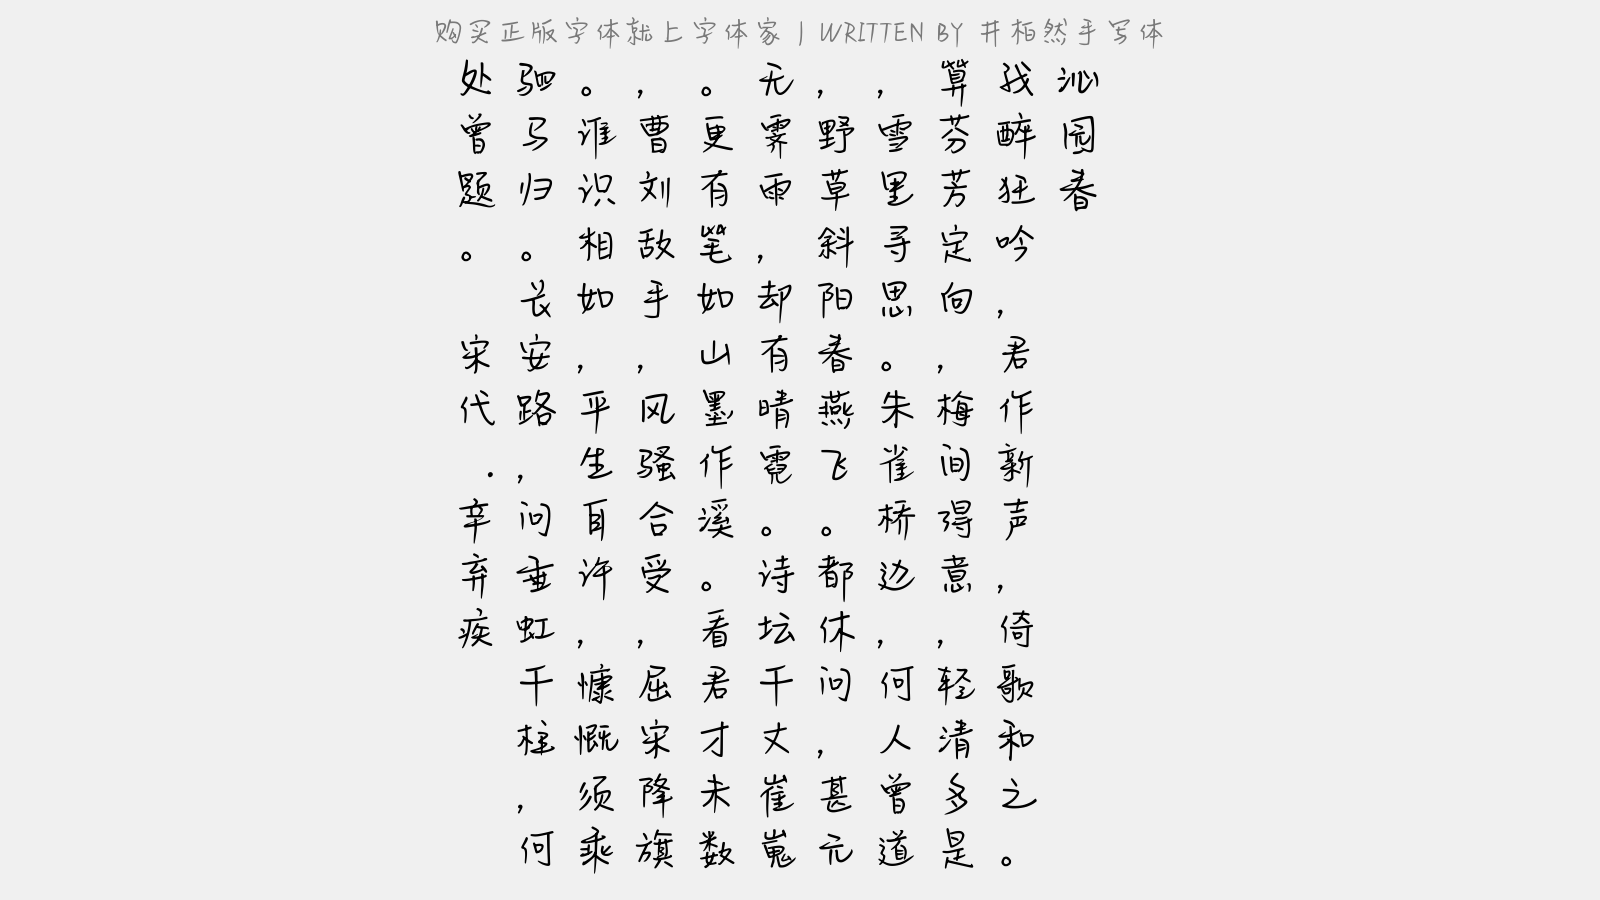 购买正版字体就上字体家丨WRITTEN BY 井柏然手写体
沁园春
我醉狂吟，君作新声，倚歌和之。
算芬芳定向，梅间得意，轻清多是
，雪里寻思。朱雀桥边，何人曾道
，野草斜阳春燕飞。都休问，甚元
无霁雨，却有晴霓。诗坛千丈崔嵬
。更有笔如山墨作溪。看君才未数
，曹刘敌手，风骚合受，屈宋降旗
。谁识相如，平生自许，慷慨须乘
驷马归。长安路，问垂虹千柱，何
处曾题。 宋代·辛弃疾